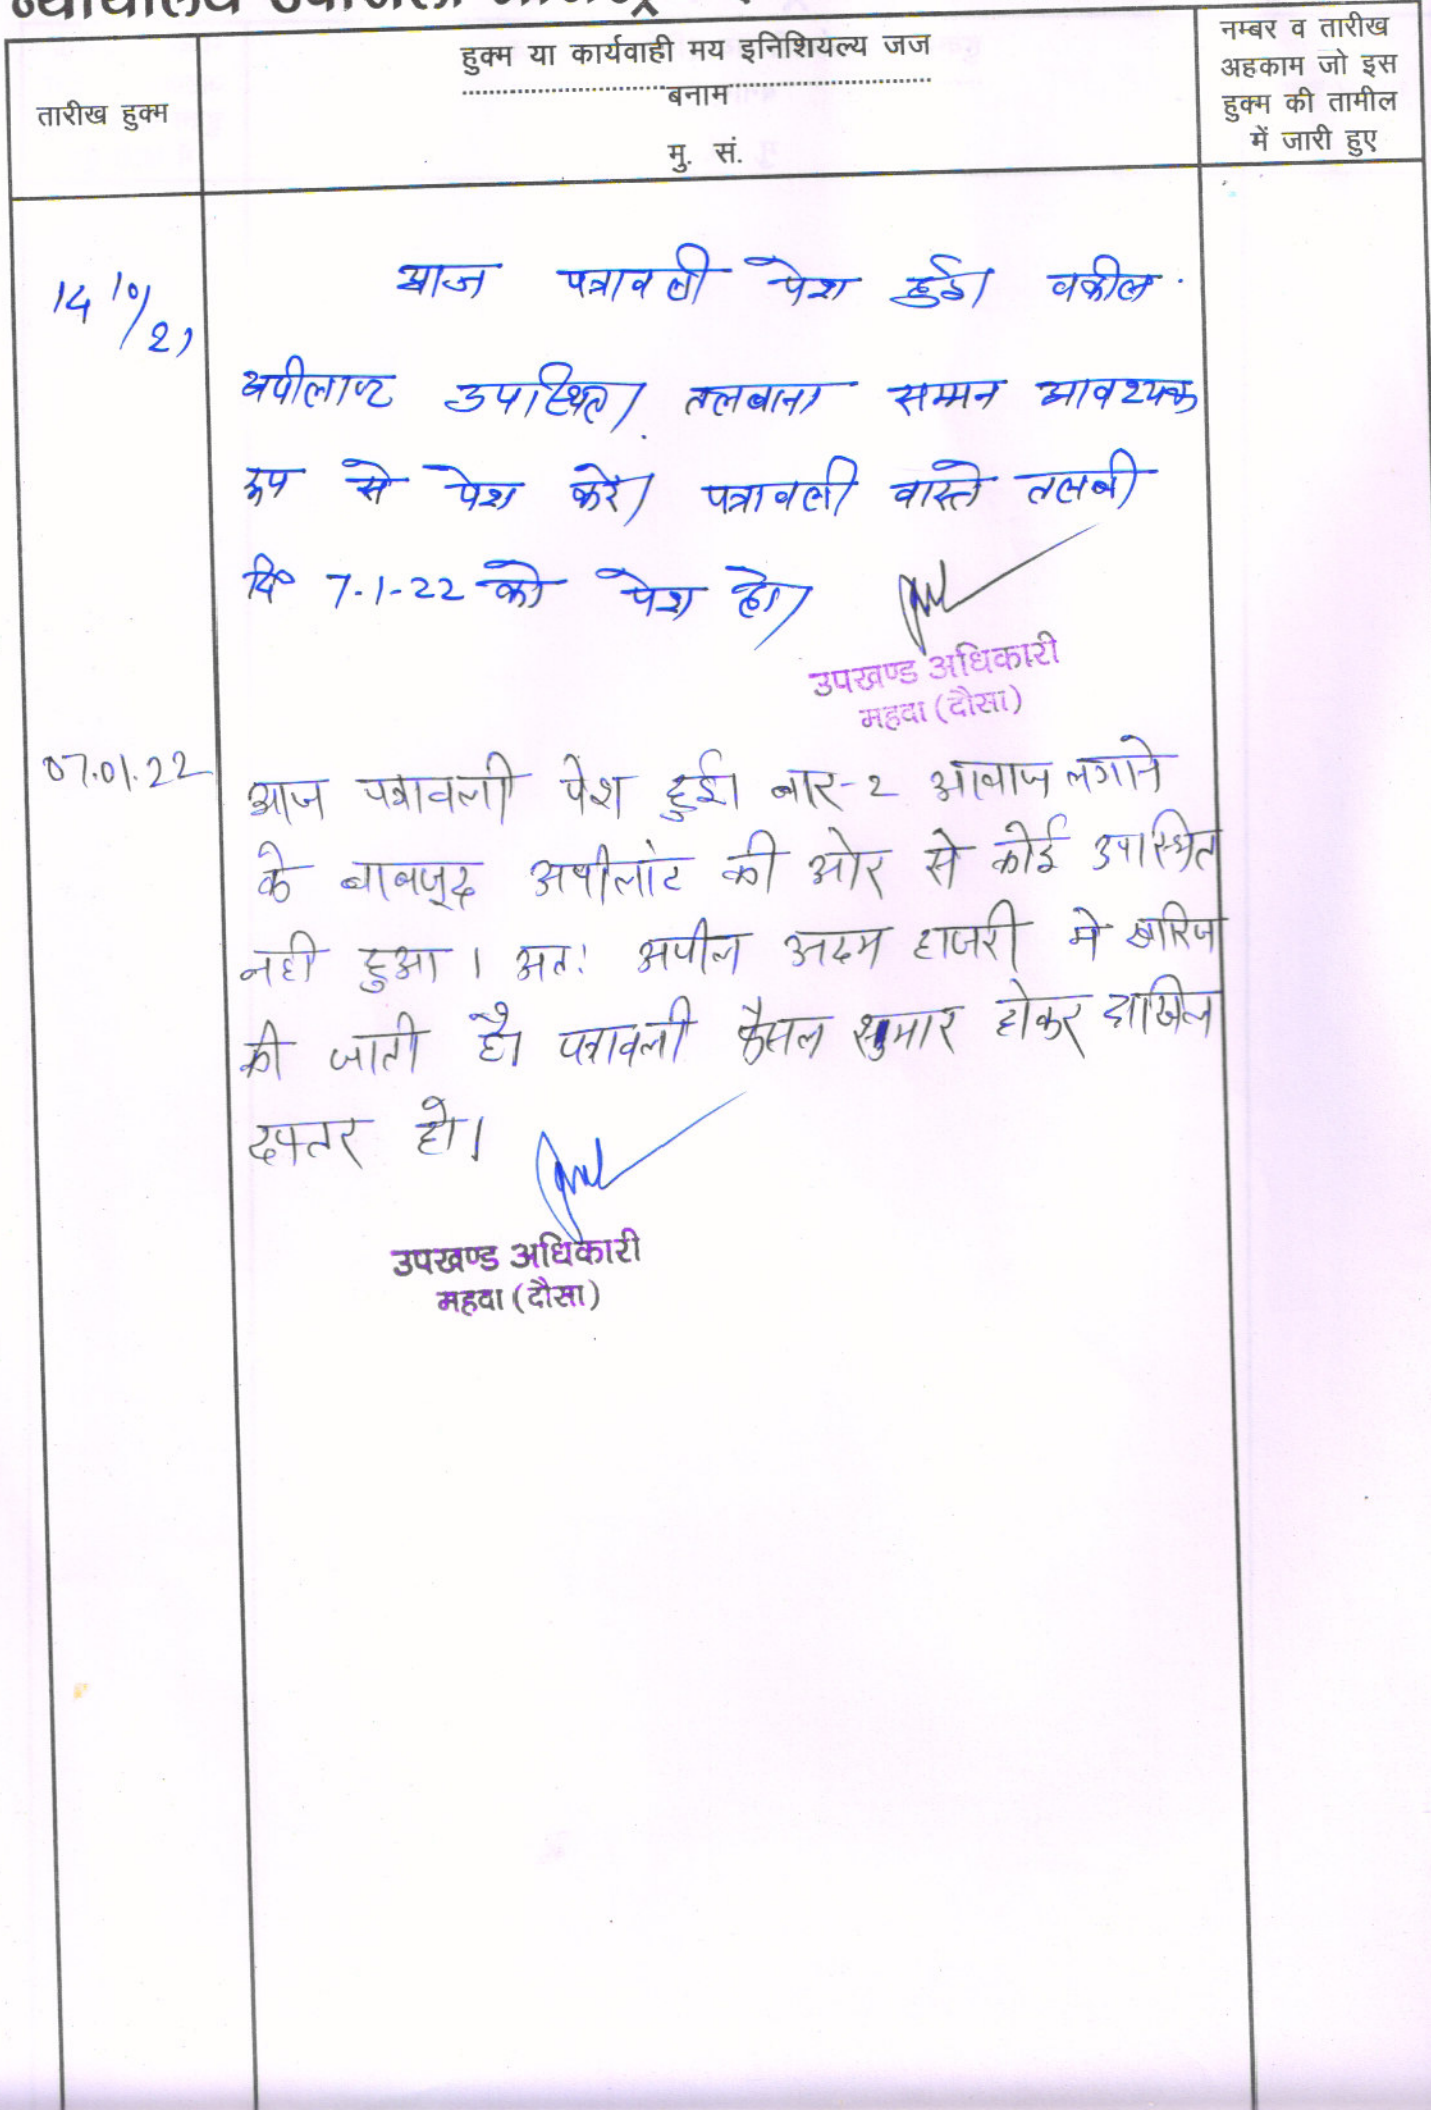 न्यायालय
तारीख हुक्म
हुक्म या कार्यवाही मय इनिशियल्य जज
बनाम
मु. सं.
नम्बर व तारीख
अहकाम जो इस
हुक्म की तामील
में जारी हुए
14/10/21
आज पत्रावली पेश हुई। वकील
अपीलाण्ट उपस्थित। तलबाना सम्मन आवश्यक
रूप से पेश करें। पत्रावली वास्ते तलबी
दि० 7-1-22 को पेश हो।
उपखण्ड अधिकारी
महवा (दौसा)
07.01.22
आज पत्रावली पेश हुई। बार-2 आवाज लगाने
के बाबजूद अपीलांट की ओर से कोई उपस्थित
नही हुआ । अत: अपील अदम हाजरी मे खारिज
की जाती है। पत्रावली फैसल शुमार होकर दाखिल
दफ्तर हो।
उपखण्ड अधिकारी
महवा (दौसा)